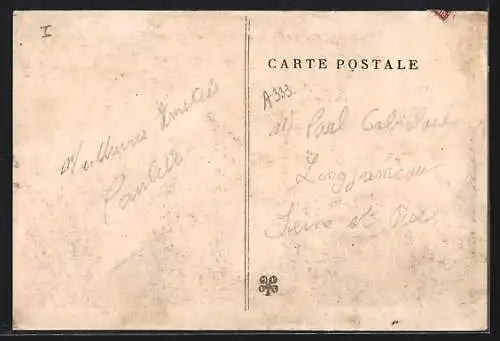 I
CARTE POSTALE
A333
Meilleures Amitiés
Paulette
Mr Paul
Longjumeau
Seine et Oise